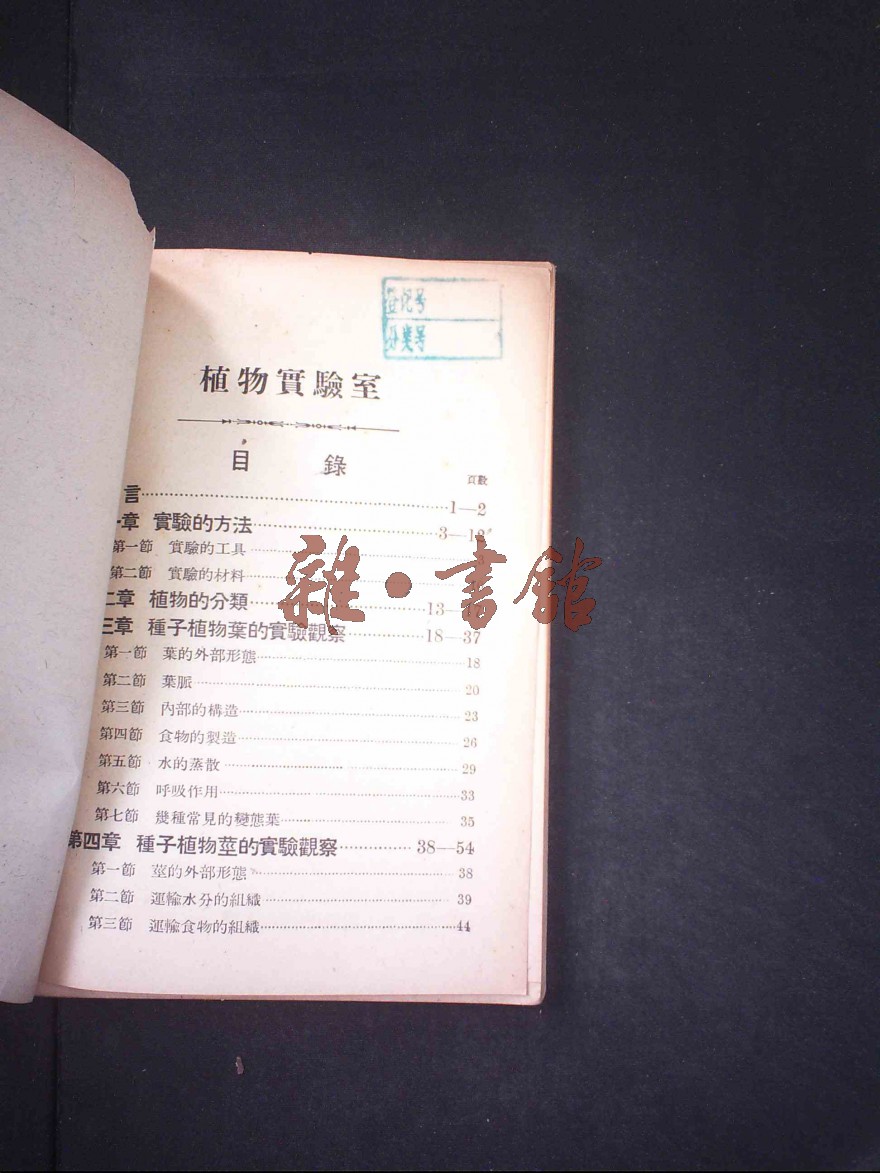 登记号
分类号
植物實驗室
目 錄
頁數
言……1—2
章 實驗的方法……3—12
第一節 實驗的工具……
第二節 實驗的材料……
二章 植物的分類……13—
三章 種子植物葉的實驗觀察……18—37
第一節 葉的外部形態……18
第二節 葉脈……20
第三節 內部的構造……23
第四節 食物的製造……26
第五節 水的蒸散……29
第六節 呼吸作用……33
第七節 幾種常見的變態葉……35
第四章 種子植物莖的實驗觀察……38—54
第一節 莖的外部形態……38
第二節 運輸水分的組織……39
第三節 運輸食物的組織……44
雜·書館